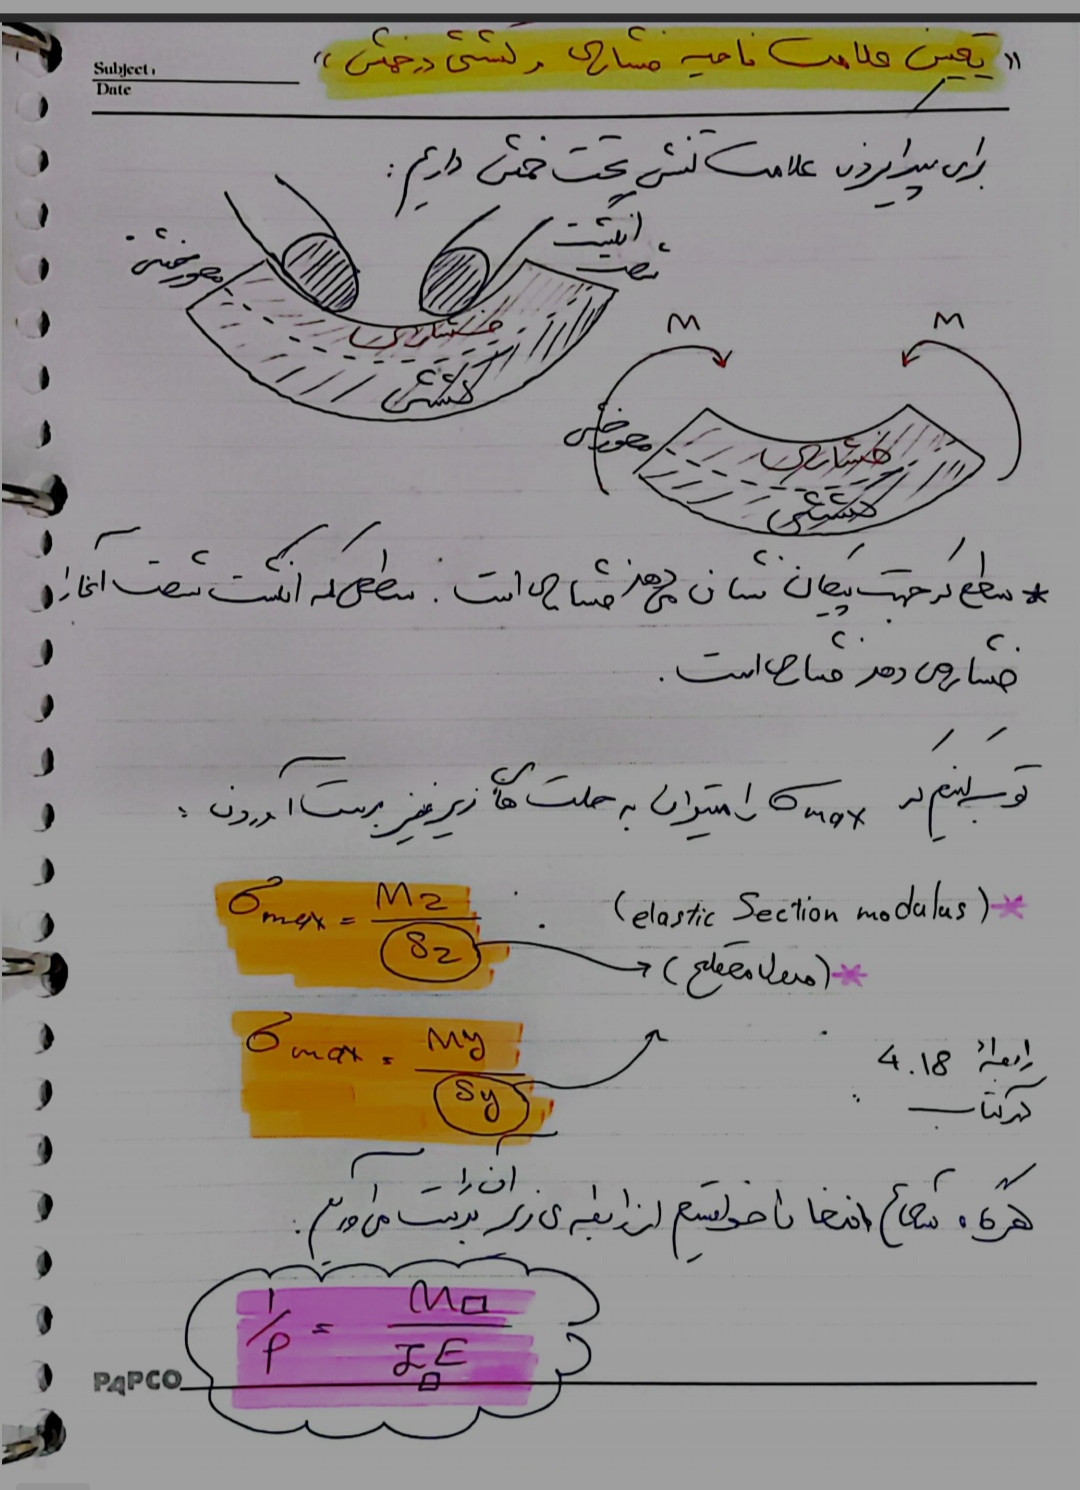 Subject:
Date
« تعیین علامت ناحیه فشاری و کششی در خمش »
برای پیدا کردن علامت تنش تحت خمش داریم :
انگشت
شست
محور خنثی
فشاری
کششی
M M
محور خنثی
فشاری
کششی
* سطحی که جهت پیکان نشان می دهد فشاری است . سطحی که انگشت شست آنجا را
فشار می دهد فشاری است .
توجه کنیم که σmax را میتوان به حالت های زیر نیز بدست آورد :
σmax = Mz / Sz
(elastic Section modulus) *
(مدول مقطع) *
σmax = My / Sy
رابطه 4.18
در کتاب
هرگاه شعاع انحنا را خواستیم از رابطه ی زیر آن را بدست می آوریم :
1/ρ = M□ / I□ E
PAPCO